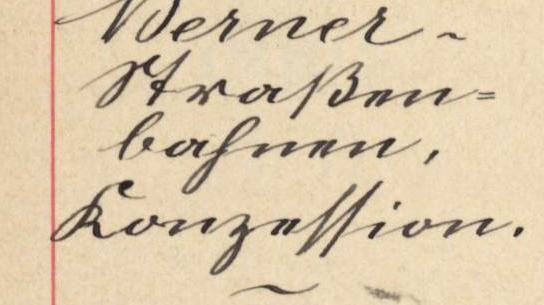 Berner-
Straßen=
bahnen,
Konzession.